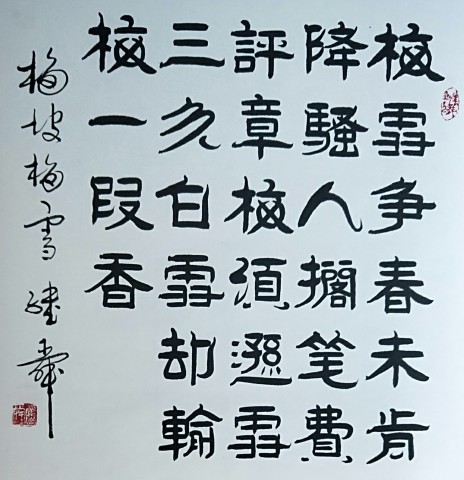 梅雪争春未肯
降騷人擱笔費
評章梅須遜雪
三分白雪却輸
梅一段香
梅坡梅雪